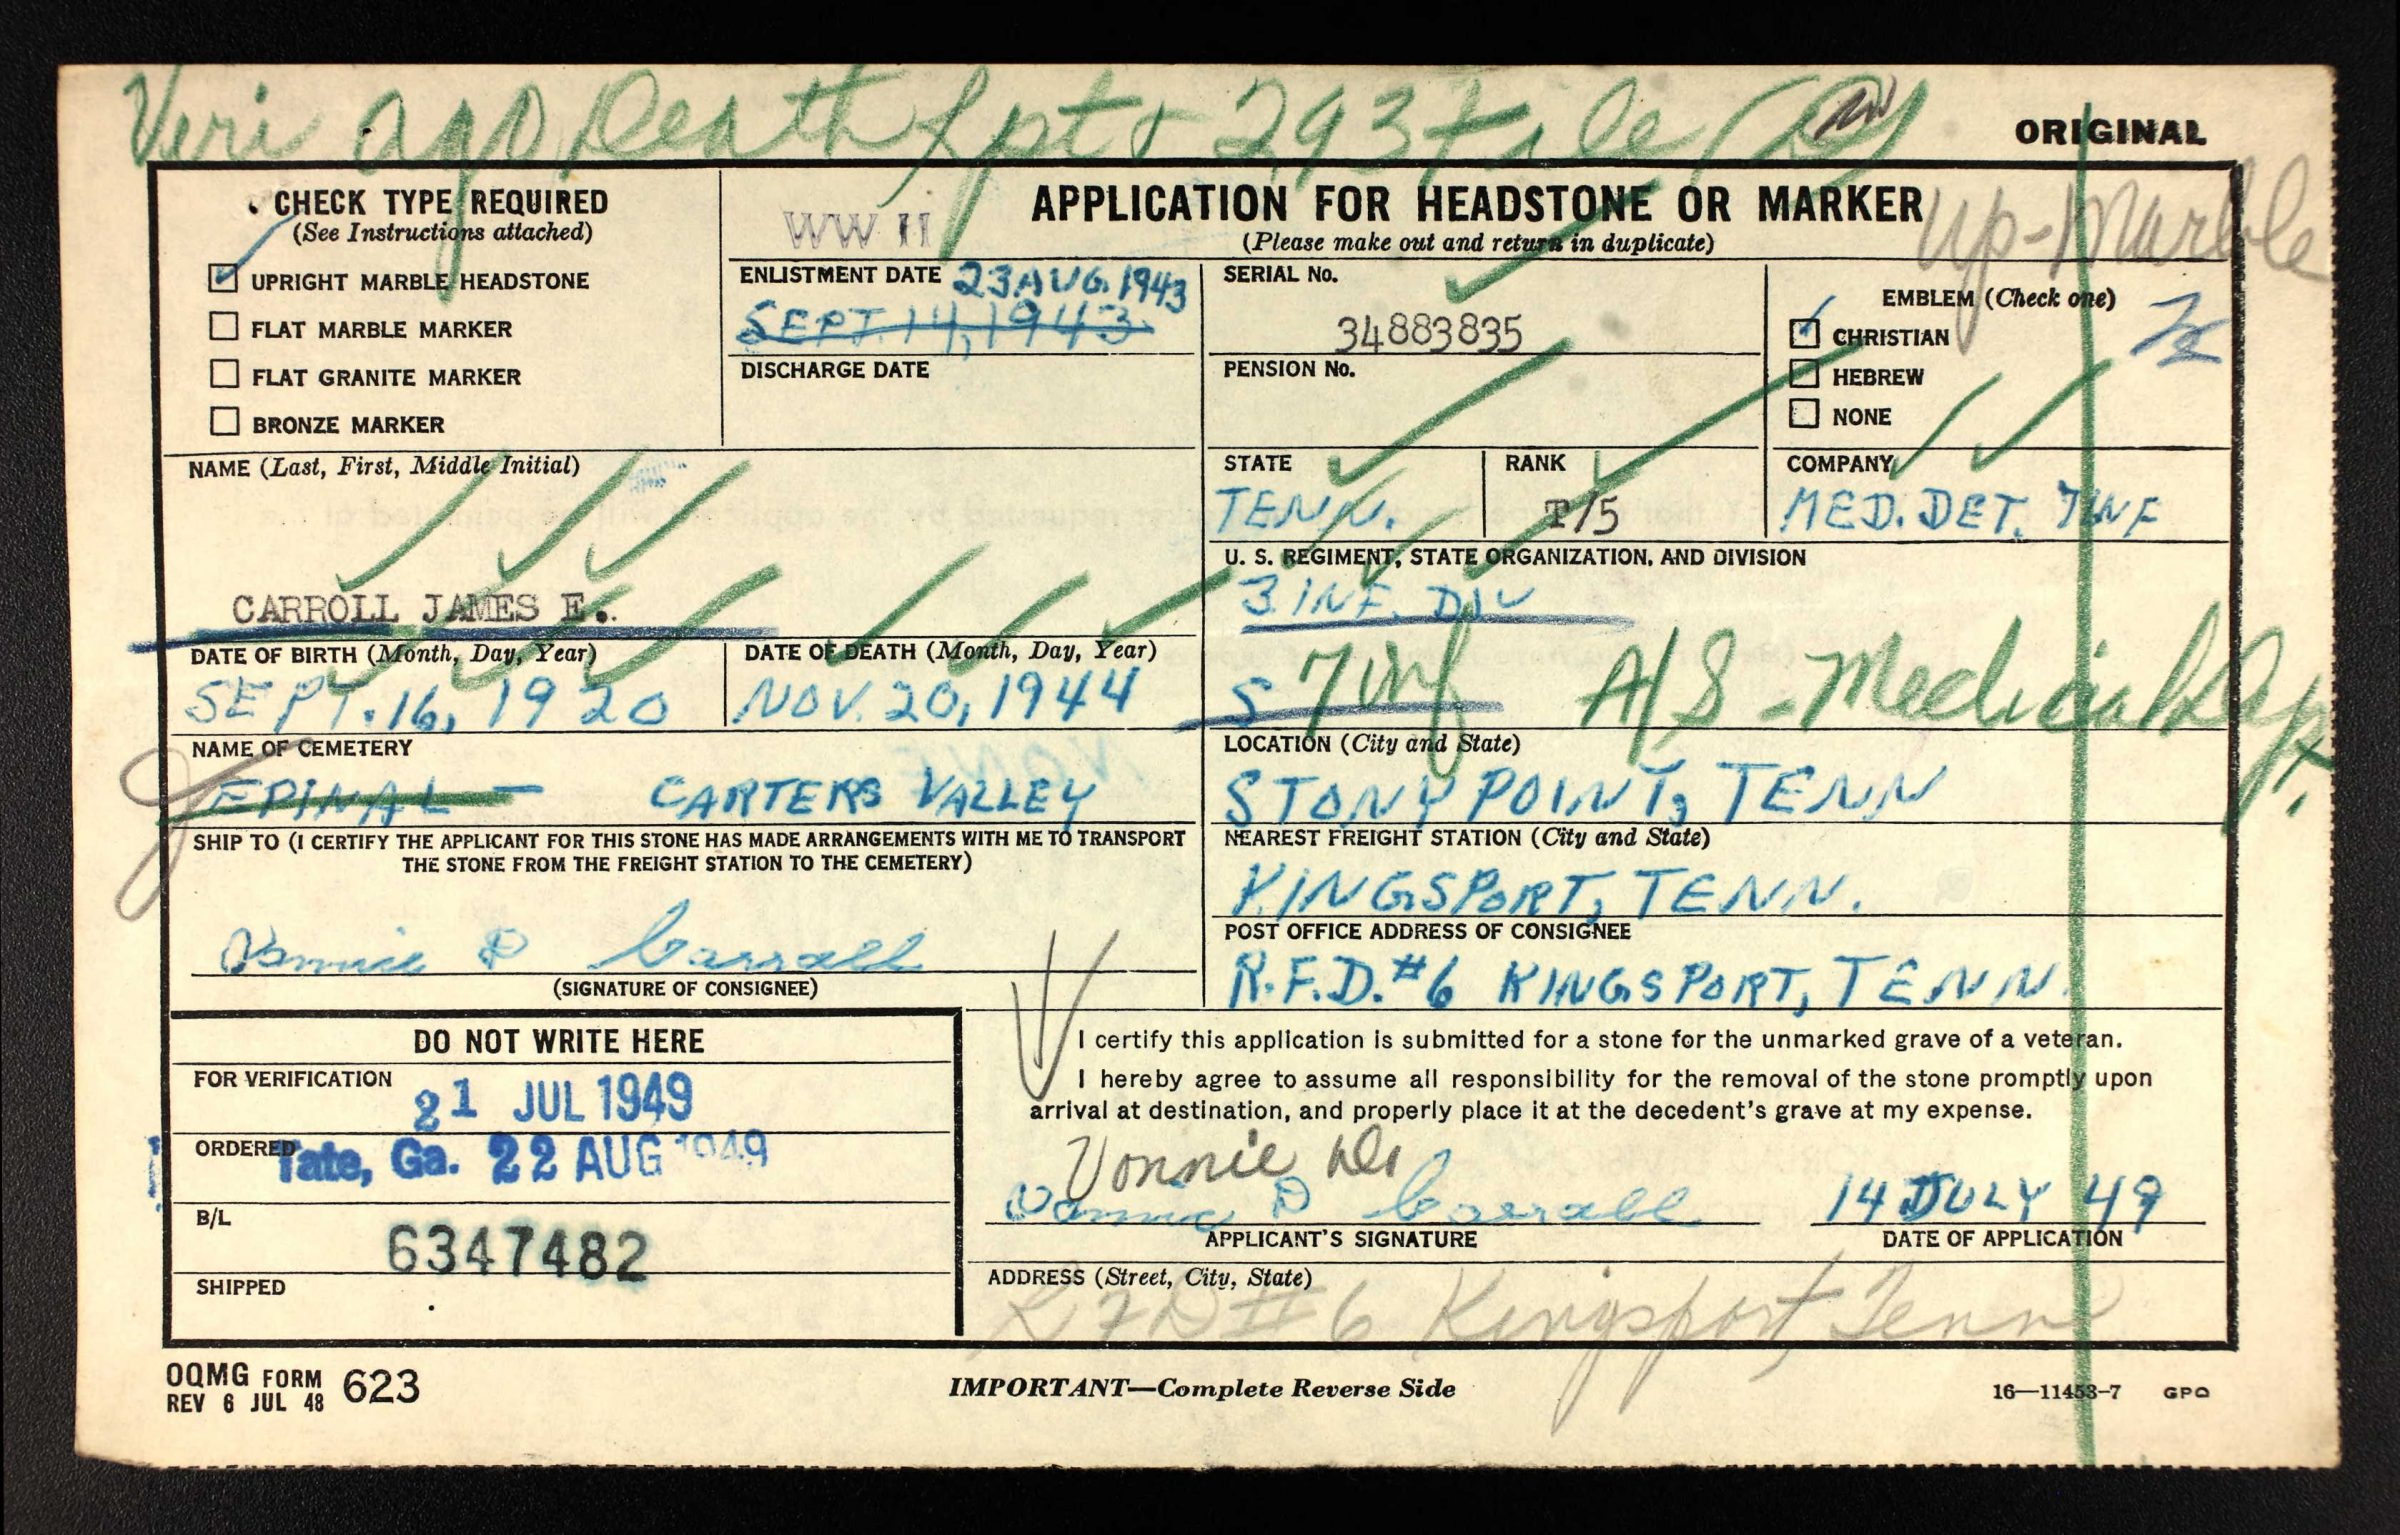 Veri AGO Death Rpt & 293 File
ORIGINAL
CHECK TYPE REQUIRED
(See Instructions attached)
UPRIGHT MARBLE HEADSTONE
FLAT MARBLE MARKER
FLAT GRANITE MARKER
BRONZE MARKER
WW II
APPLICATION FOR HEADSTONE OR MARKER
(Please make out and return in duplicate)
Up-Marble
ENLISTMENT DATE 23 AUG. 1943
SEPT. 14, 1943
DISCHARGE DATE
SERIAL No.
34883835
PENSION No.
EMBLEM (Check one)
CHRISTIAN
HEBREW
NONE
NAME (Last, First, Middle Initial)
CARROLL JAMES E.
STATE
TENN.
RANK
T/5
COMPANY
MED. DET. 7 INF
U. S. REGIMENT, STATE ORGANIZATION, AND DIVISION
3. INF. DIV
S 7 Inf A/S - Medical Dept.
DATE OF BIRTH (Month, Day, Year)
SEPT. 16, 1920
DATE OF DEATH (Month, Day, Year)
NOV. 20, 1944
NAME OF CEMETERY
EPINAL - CARTERS VALLEY
LOCATION (City and State)
STONY POINT, TENN
SHIP TO (I CERTIFY THE APPLICANT FOR THIS STONE HAS MADE ARRANGEMENTS WITH ME TO TRANSPORT
THE STONE FROM THE FREIGHT STATION TO THE CEMETERY)
Vonnie D Carroll
(SIGNATURE OF CONSIGNEE)
NEAREST FREIGHT STATION (City and State)
KINGSPORT, TENN.
POST OFFICE ADDRESS OF CONSIGNEE
R.F.D. #6 KINGSPORT, TENN.
DO NOT WRITE HERE
FOR VERIFICATION
21 JUL 1949
ORDERED
Tate, Ga. 22 AUG 1949
B/L
6347482
SHIPPED
I certify this application is submitted for a stone for the unmarked grave of a veteran.
I hereby agree to assume all responsibility for the removal of the stone promptly upon
arrival at destination, and properly place it at the decedent's grave at my expense.
Vonnie
Vonnie D Carroll
APPLICANT'S SIGNATURE
14 JULY 49
DATE OF APPLICATION
ADDRESS (Street, City, State)
RFD #6 Kingsport, Tenn
OQMG FORM 623
REV 6 JUL 48
IMPORTANT—Complete Reverse Side
16—11453-7 GPO